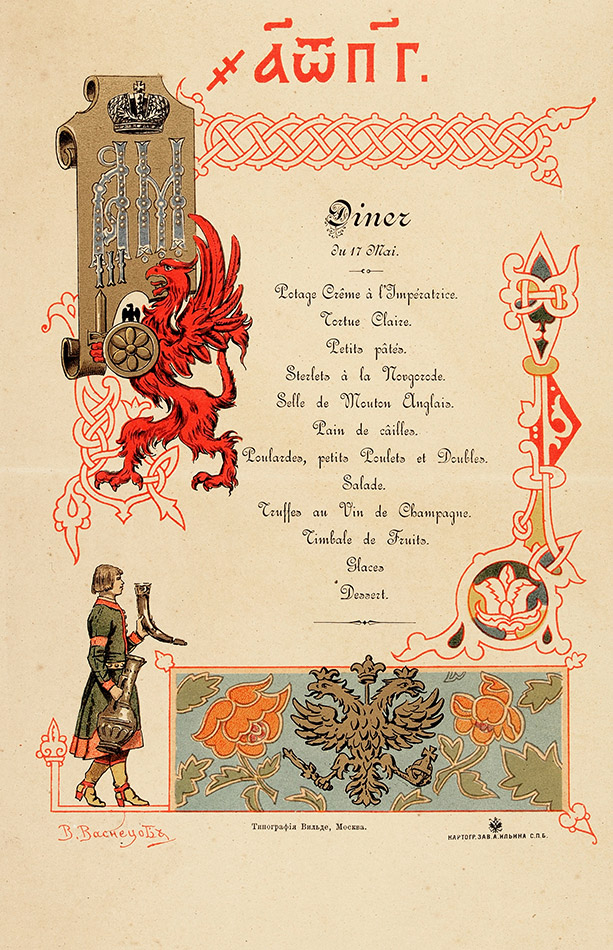 ҂а҃ѿп҃г.
Diner
du 17 Mai.
Potage Crême à l'Impératrice.
Tortue Claire.
Petits pâtés.
Sterlets à la Novgorode.
Selle de Mouton Anglais.
Pain de câilles.
Poulardes, petits Poulets et Doubles.
Salade.
Truffes au Vin de Champagne.
Timbale de Fruits.
Glaces
Dessert.
В. Васнецовъ
Типографія Вильде, Москва.
КАРТОГР. ЗАВ. А. ИЛЬИНА С.П.Б.